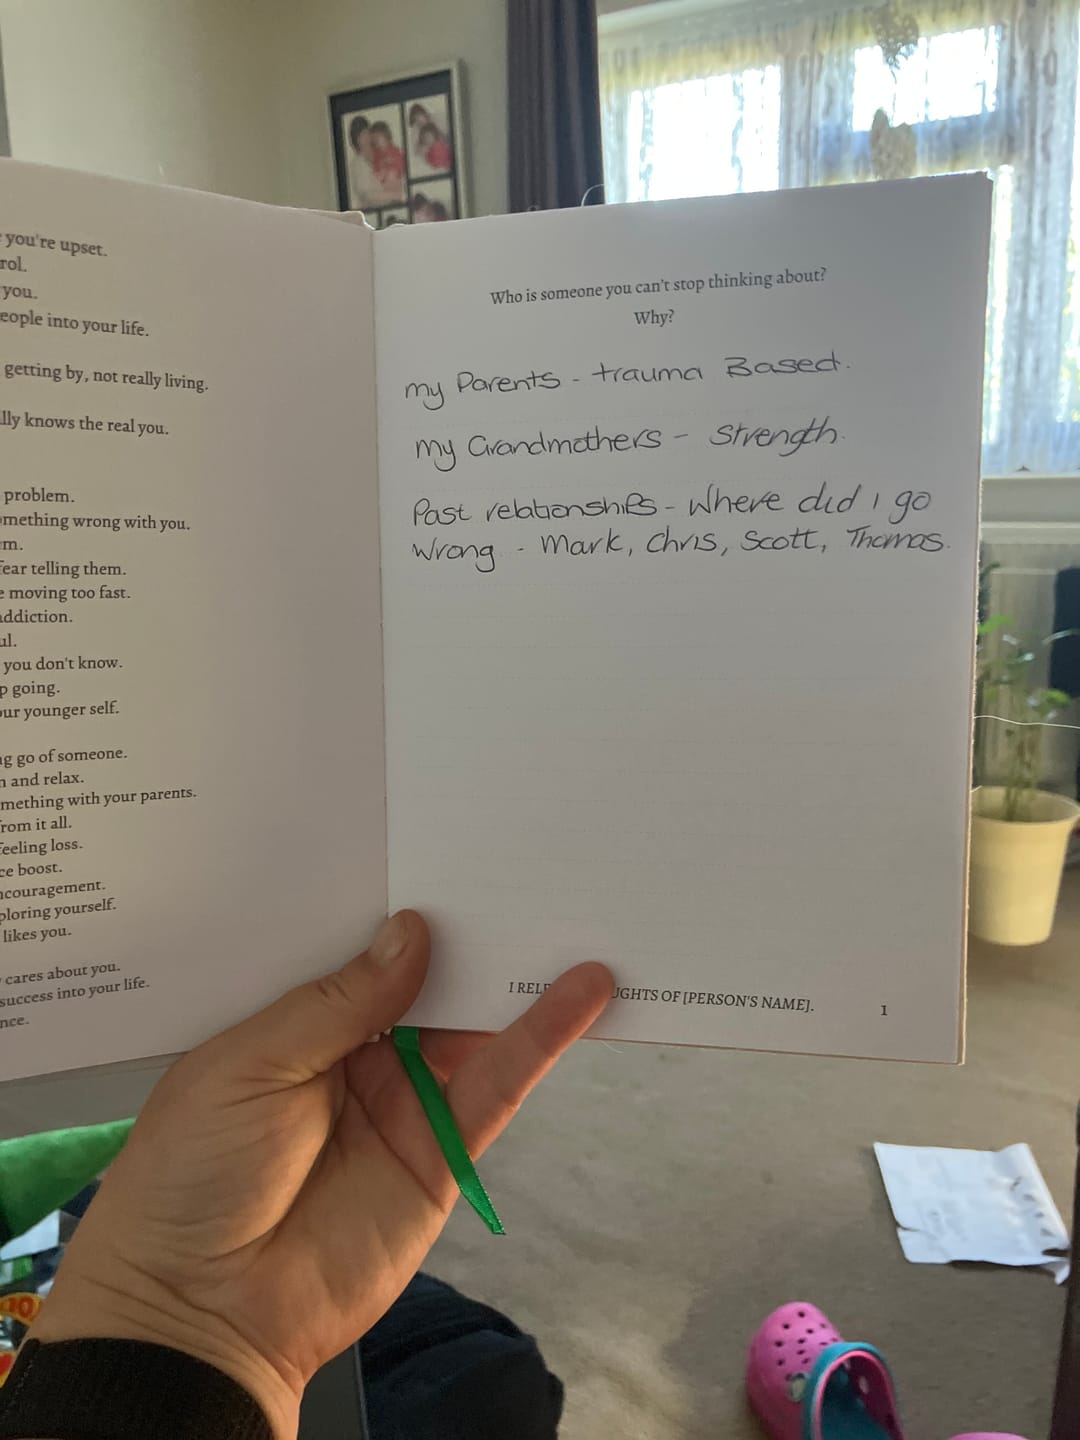 you're upset.
rol.
you.
eople into your life.
getting by, not really living.
lly knows the real you.
problem.
mething wrong with you.
m.
fear telling them.
e moving too fast.
addiction.
ul.
you don't know.
p going.
ur younger self.
ng go of someone.
n and relax.
mething with your parents.
from it all.
feeling loss.
ce boost.
ncouragement.
ploring yourself.
likes you.
cares about you.
success into your life.
nce.
Who is someone you can't stop thinking about?
Why?
my Parents - trauma Based.
my Grandmothers - Strength.
Past relationships - Where did I go
Wrong - Mark, Chris, Scott, Thomas.
I RELE UGHTS OF [PERSON'S NAME].
1